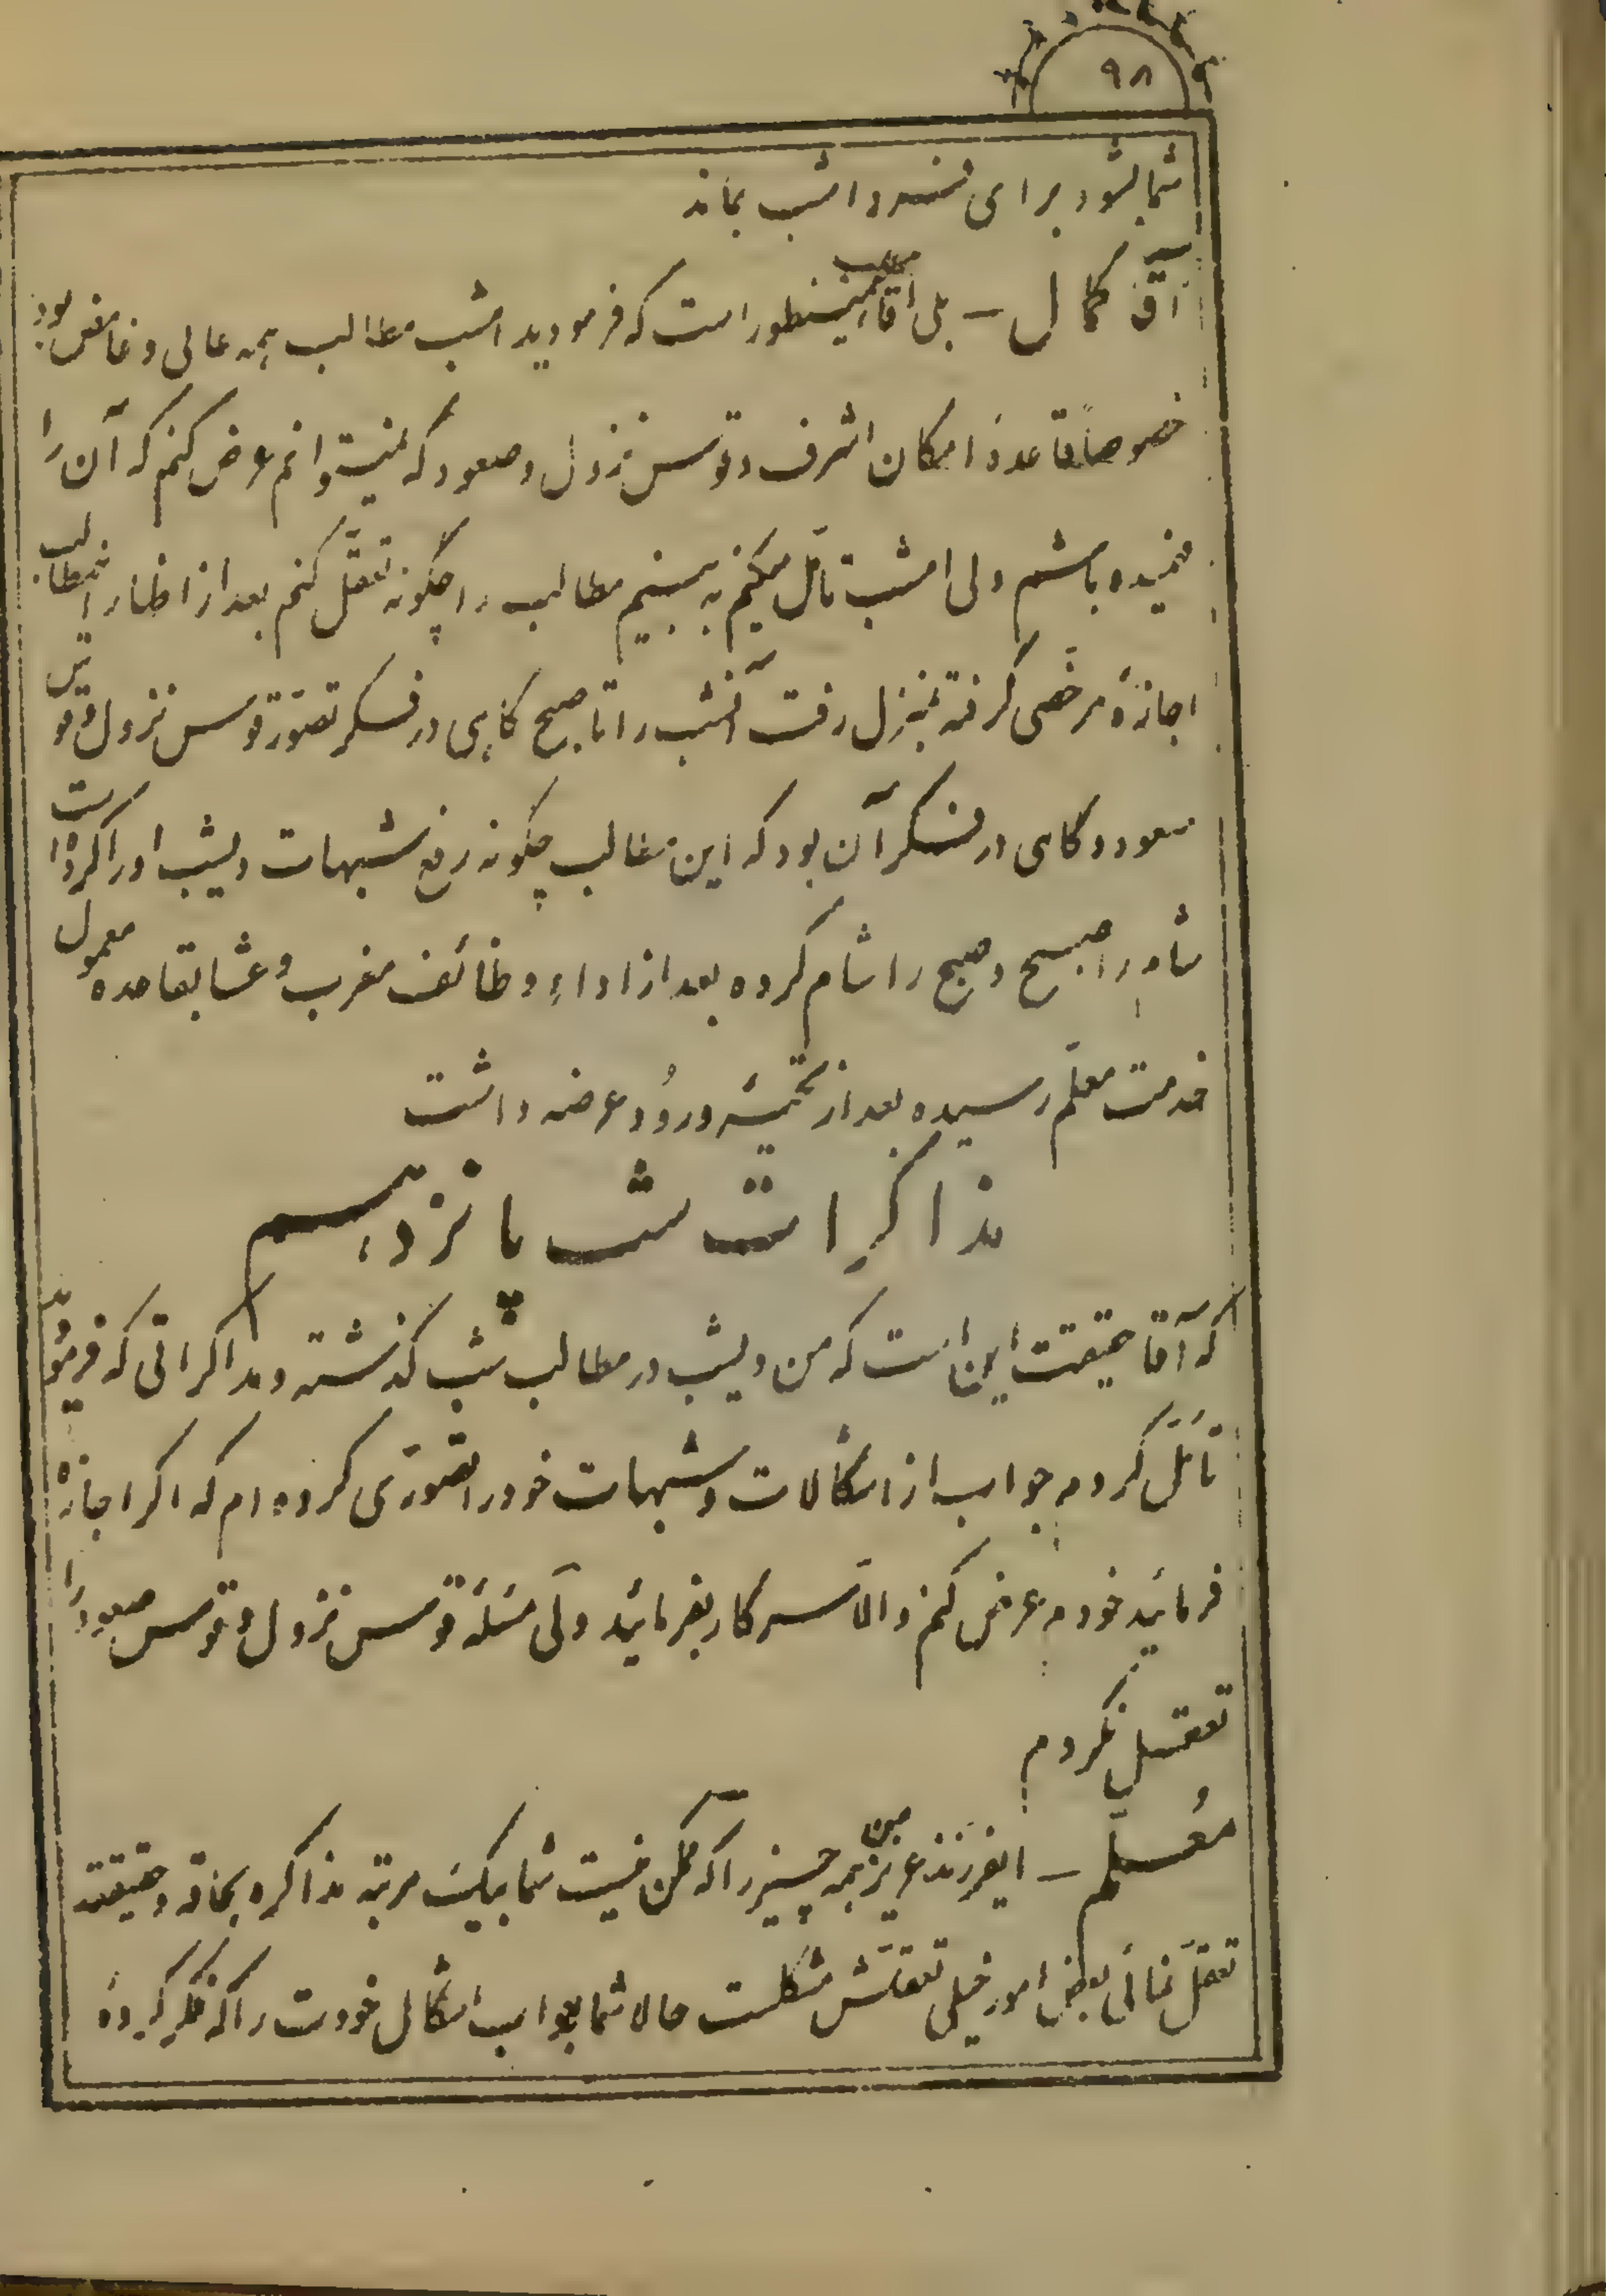 ۹۸
شما بشود برای فردا شب بماند
آقا کمال – بلی آقا مطلب همینطور است که فرمودید امشب مطالب همه عالی و غامض بود
خصوصاً قاعدهٔ امکان اشرف و قوس نزول و صعود که نمیتوانم عرض کنم که آن را
فهمیده باشم ولی امشب تأمّل میکنم به بینم مطالب را چگونه تعقّل کنم بعد از اظهار اینمطالب
اجازهٔ مرخّصی گرفته بمنزل رفت آنشب را تا صبح گاهی در فکر تصوّر قوس نزول و قوس
صعود و گاهی در فکر آن بود که این مطالب چگونه رفع شبهات دیشب او را کرده است
شام را صبح و صبح را شام کرده بعد از اداء وظائف مغرب و عشا بقاعده معمول
خدمت معلّم رسیده بعد از تحیّهٔ ورُود عرضه داشت
مذاکرات شب پانزدهم
که آقا حقیقت این است که من دیشب در مطالب شب گذشته و مذاکراتی که فرمودید
تأمّل کردم جواب از اشکالات و شبهات خود را تصوّری کرده ام که اگر اجازه
فرمائید خودم عرض کنم والّا سرکار بفرمائید ولی مسئلهٔ قوس نزول و قوس صعود را
تعقّل نکردم
مُعلّم – ایفرزند عزیز من همه چیز را که ممکن نیست شما بیک مرتبه مذاکره بکماله و حقیقته
تعقّل نمائی بعض امور خیلی تعقّلش مشکلست حالا شما جواب اشکال خودت را که فکر کردهٔ